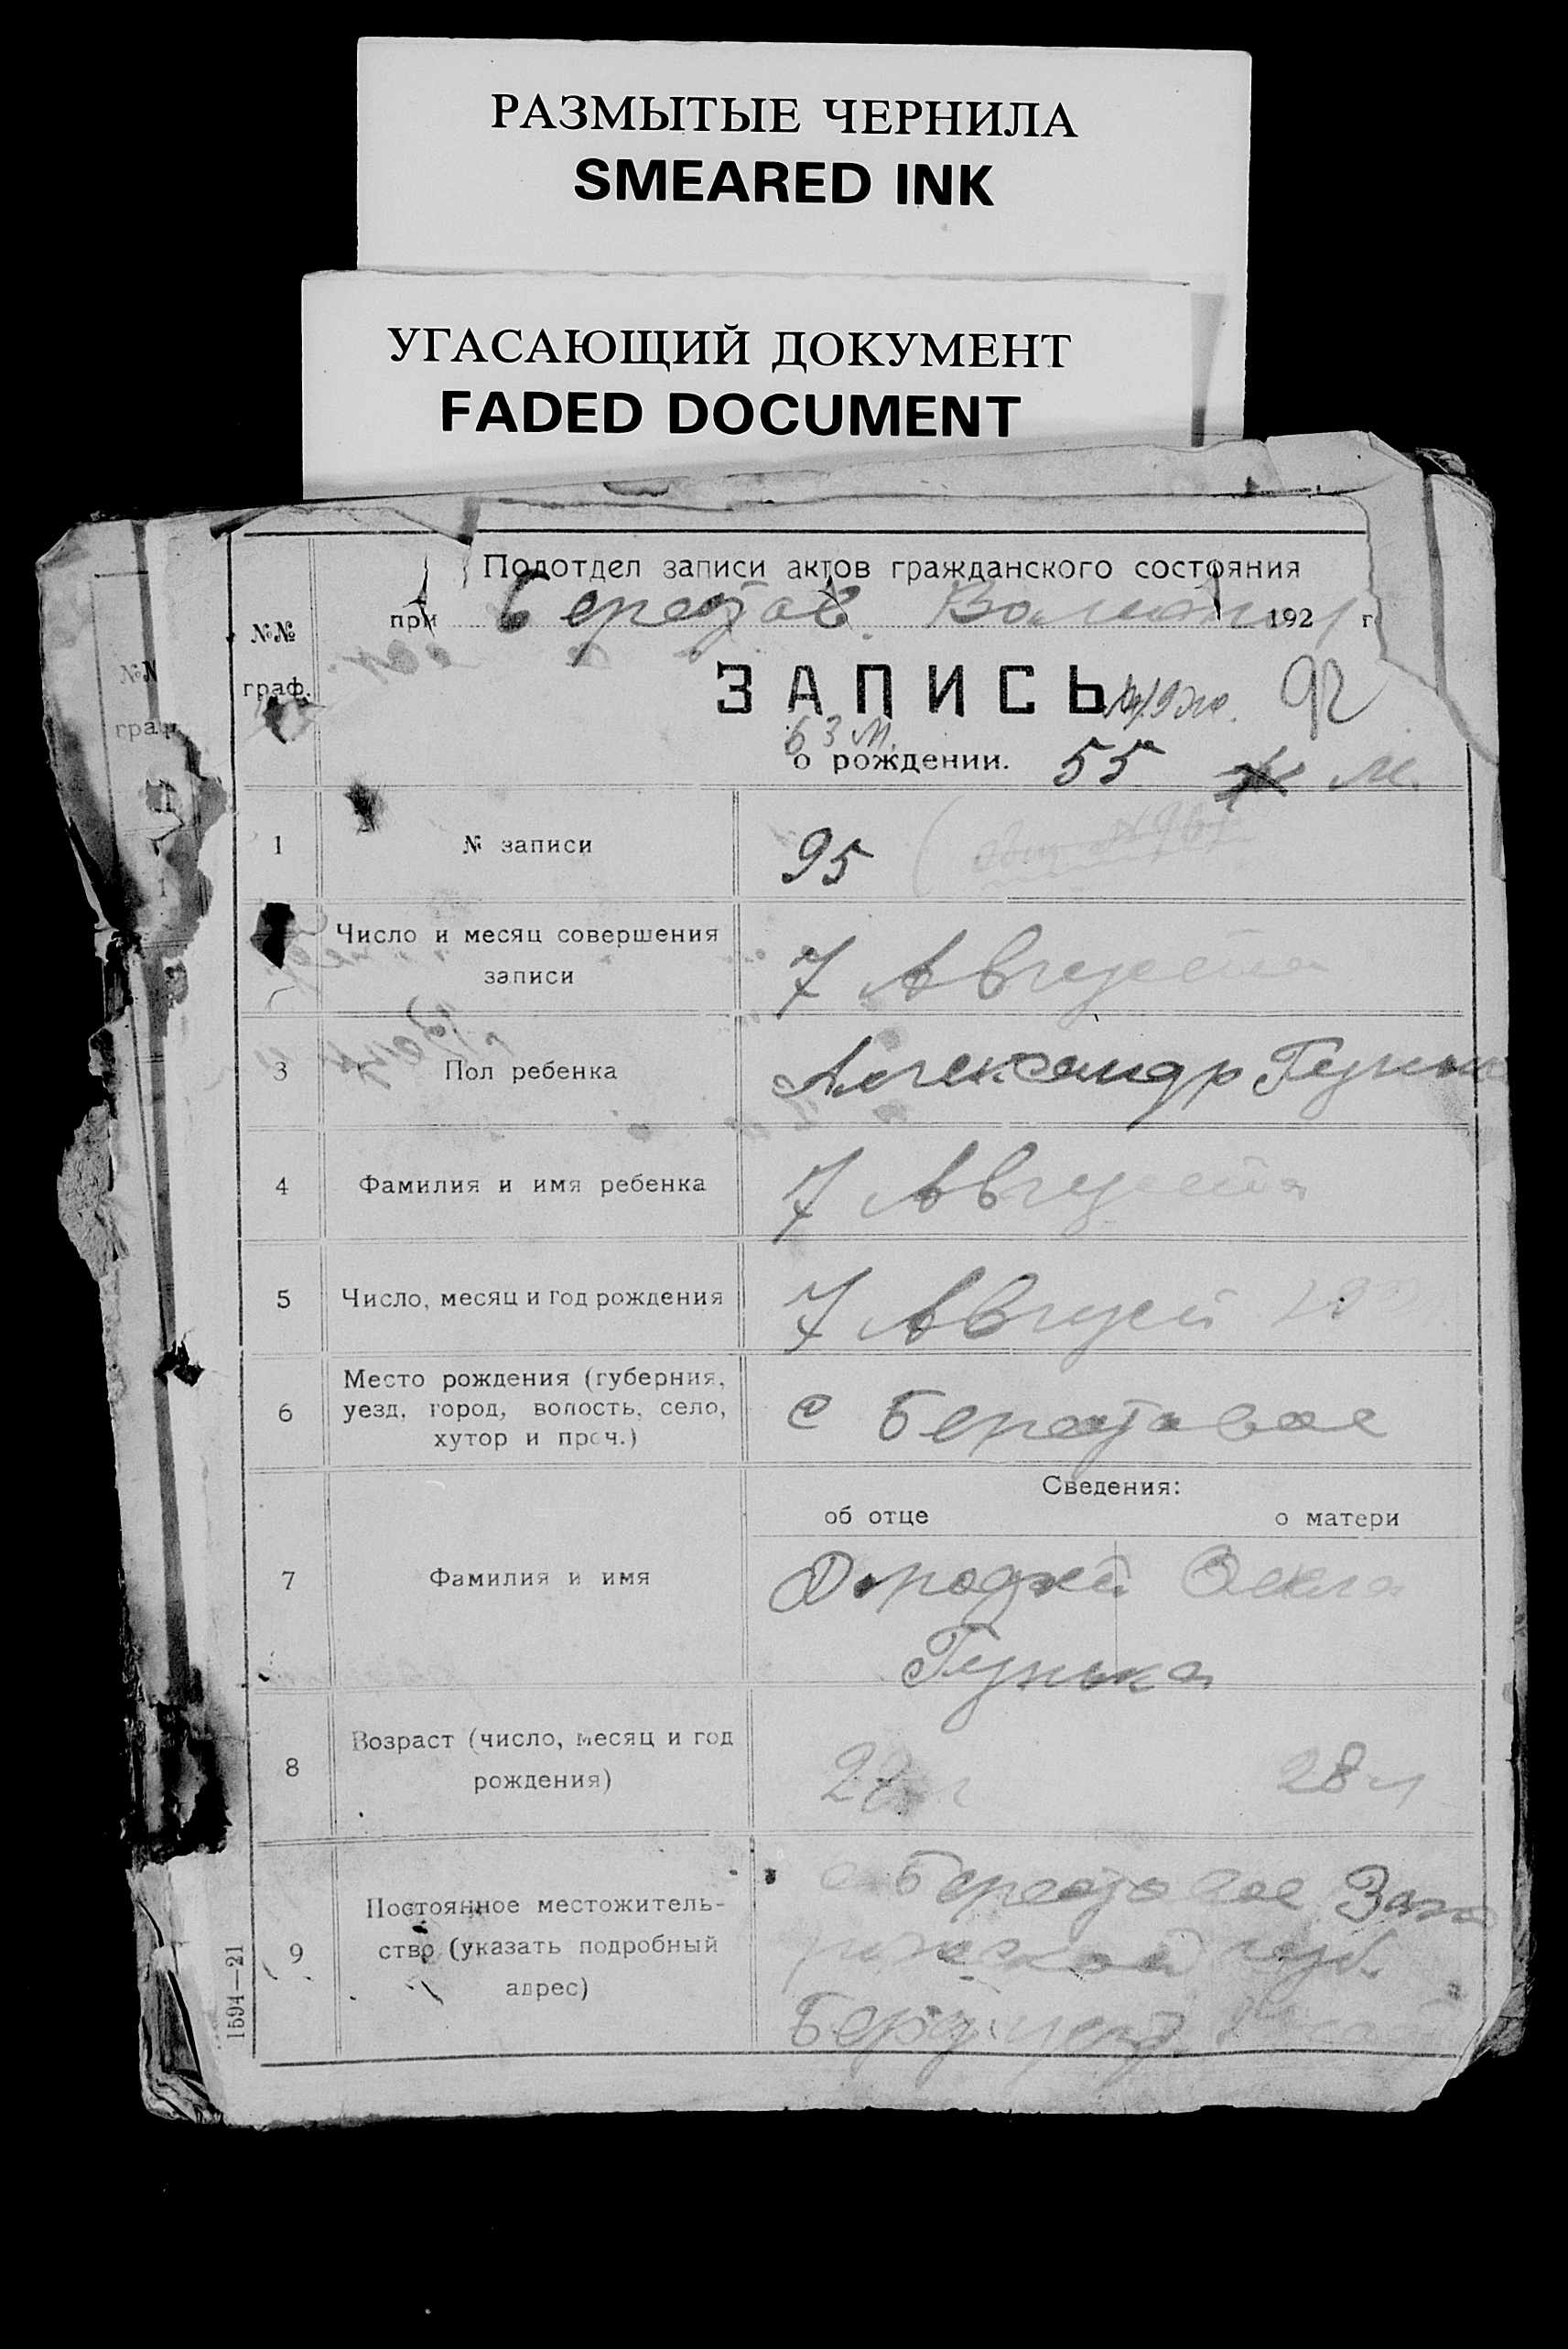 РАЗМЫТЫЕ ЧЕРНИЛА
SMEARED INK
УГАСАЮЩИЙ ДОКУМЕНТ
FADED DOCUMENT
Подотдел записи актов гражданского состояния
№№ при Берестов. 192 г.
№№
граф.
граф.
ЗАПИСЬ 92
63 м.
о рождении. 55 м.
1 № записи 95
Число и месяц совершения
записи 7 Августа
3 Пол ребенка Александр Гунька
4 Фамилия и имя ребенка 7 Августа
5 Число, месяц и год рождения 7 Август
6 Место рождения (губерния,
уезд, город, волость, село,
хутор и проч.) с Берестовое
Сведения:
об отце о матери
7 Фамилия и имя Дорофей
Гунька
8 Возраст (число, месяц и год
рождения) 27 28 л
9 Постоянное местожитель-
ство (указать подробный
адрес) с Берестовое Запо
рожской губ.
Берд уезд
1594—21